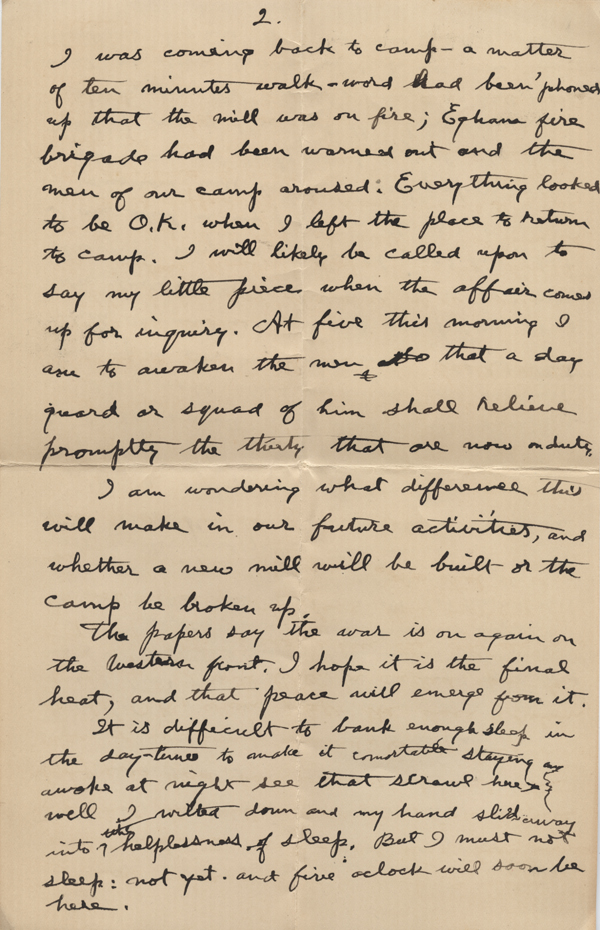 2.
I was coming back to camp - a matter
of ten minutes walk - word had been 'phoned
up that the mill was on fire; Egham fire
brigade had been warned out and the
men of our camp aroused. Everything looked
to be O.K. when I left the place to return
to camp. I will likely be called upon to
say my little piece when the affair comes
up for inquiry. At five this morning I
am to awaken the men so that a day
guard or squad of him shall relieve
promptly the thirty that are now on duty.
I am wondering what difference this
will make in our future activities, and
whether a new mill will be built or the
camp be broken up.
The papers say the war is on again on
the western front. I hope it is the final
heat, and that peace will emerge from it.
It is difficult to bank enough sleep in
the day-time to make it comfortable staying
awake at night see that scrawl here
well I wilted down and my hand slid away
into the helplessness of sleep. But I must not
sleep: not yet. and five o'clock will soon be
here.